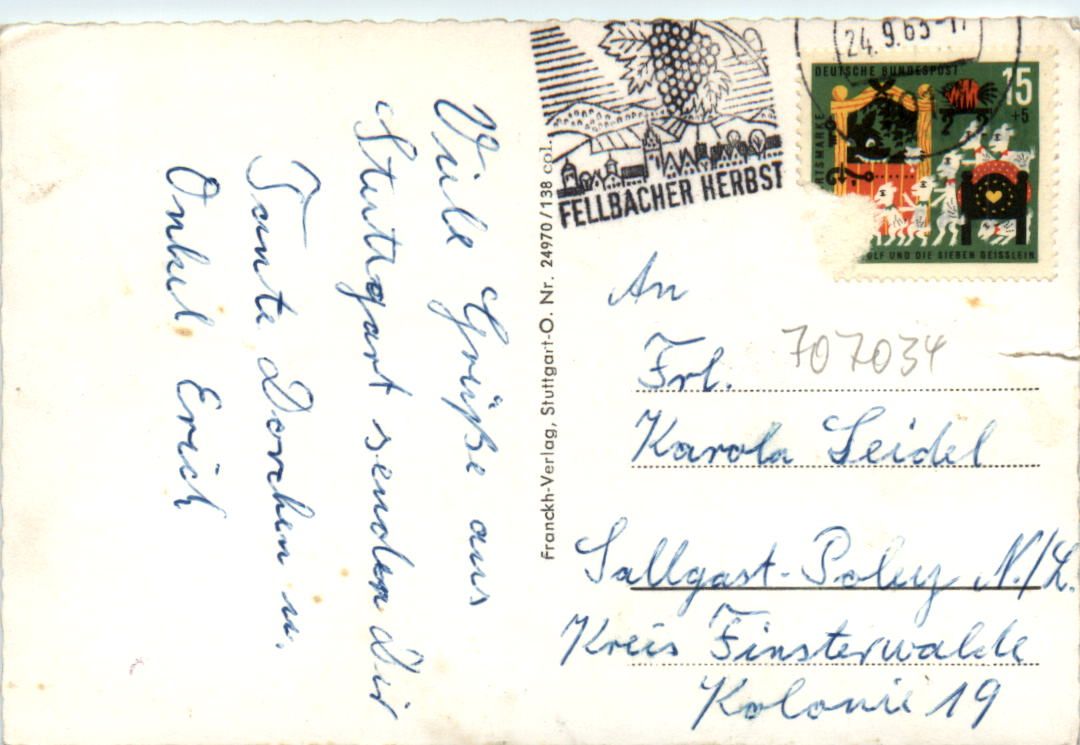 Viele Grüße aus
Stuttgart senden Dir
Tante Dorchen u.
Onkel Erich
Franckh-Verlag, Stuttgart-O. Nr. 24970/138 col.
FELLBACHER HERBST
24.9.63-17
DEUTSCHE BUNDESPOST
15
+5
RTSMARKE
OLF UND DIE SIEBEN GEISSLEIN
An
Frl.
707034
Karola Seidel
Sallgast-Poley N./L.
Kreis Finsterwalde
Kolonie 19